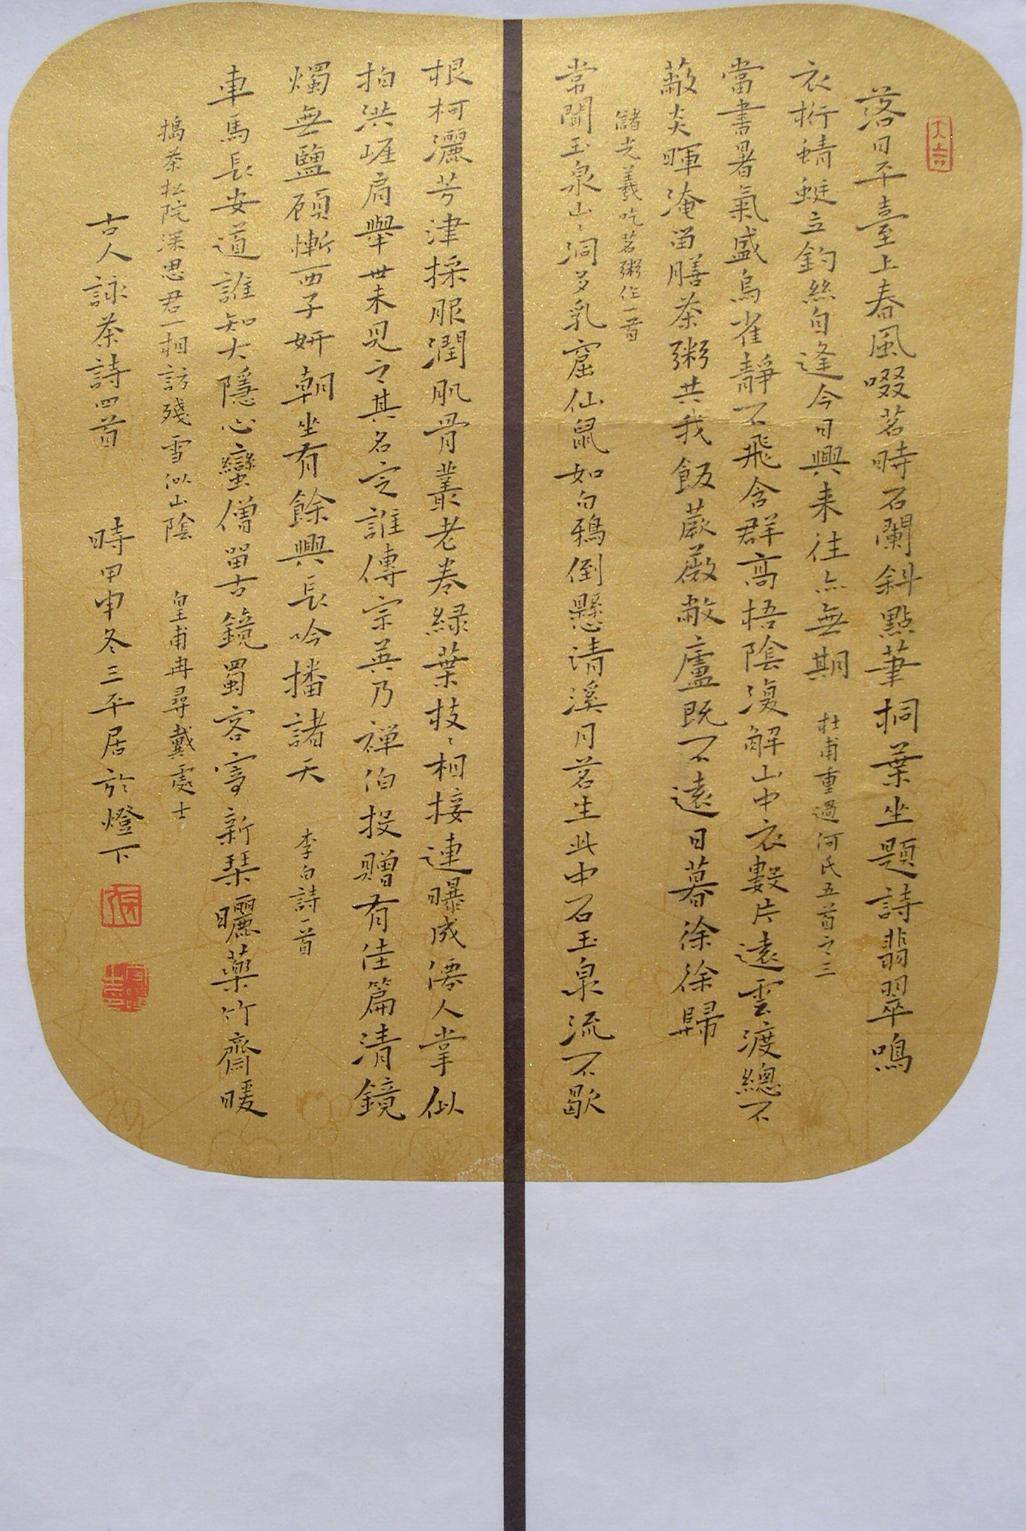 大吉
落日平臺上春風啜茗時石闌斜點筆桐葉坐題詩翡翠鳴
衣桁蜻蜓立釣絲自逢今日興来往亦無期 杜甫重過何氏五首之三
當書暑氣盛鳥雀靜不飛念群高梧陰復解山中衣數片遠雲渡總不
蔽炎暉淹留膳茶粥共我飯蕨薇敝廬既不遠日暮徐徐歸
儲光羲吃茗粥作一首
常聞玉泉山〻洞多乳窟仙鼠如白鴉倒懸清溪月茗生此中石玉泉流不歇
根柯灑芳津採服潤肌骨叢老卷緑葉枝〻相接連曝成僊人掌似
拍洪崖肩舉世未見之其名定誰傳宗英乃禪伯投贈有佳篇清鏡
燭無鹽顧慚西子妍朝坐有餘興長吟播諸天 李白詩一首
車馬長安道誰知大隱心蠻僧留古鏡蜀客寄新琹曬藥竹齋暖
搗茶松院深思君一相訪殘雪似山陰 皇甫冉尋戴處士
古人詠茶詩四首 時甲申冬三平居於燈下